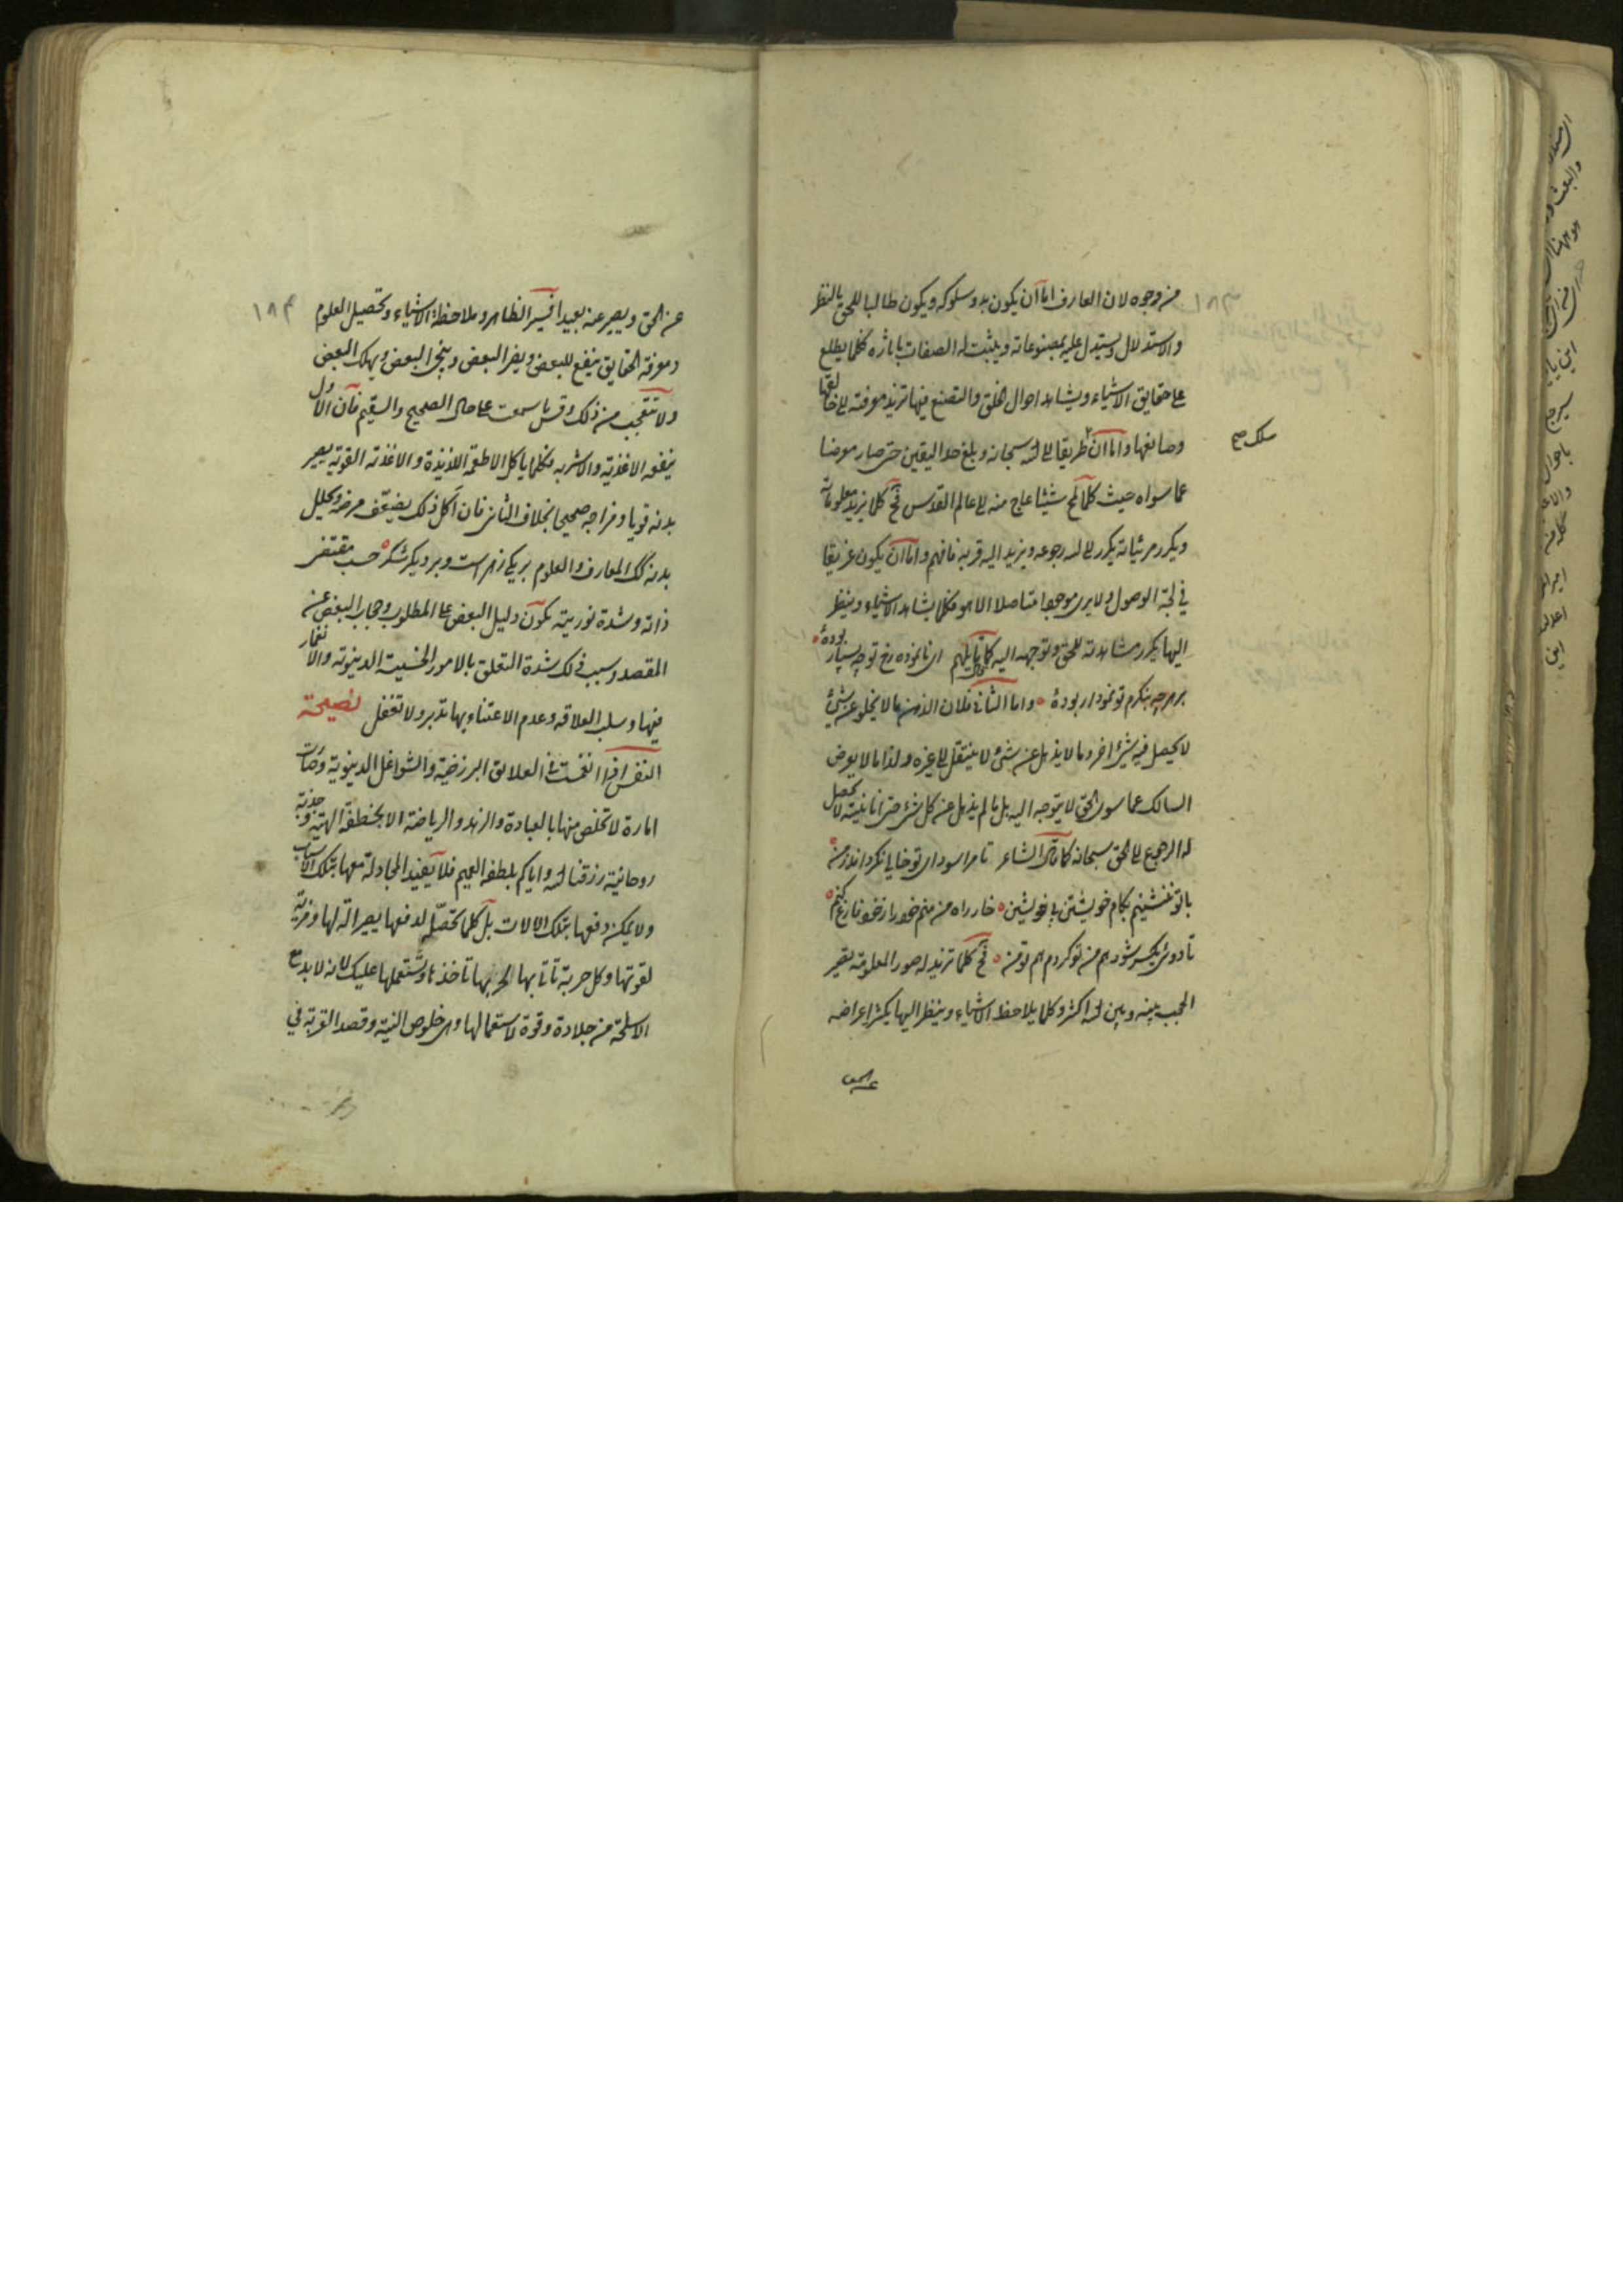 من وجوه لان العارف اما ان يكون بدو سلوكه و يكون طالبا للحق بالنظر
والاستدلال و يستدل عليه بمصنوعاته و يثبت له الصفات باثاره فكلما يطلع
على حقايق الاشياء و يشاهد احوال الخلق والتصنع فيها تزيد معرفته الى خالقها
وصانعها و اما ان سلك طريقا الى الله سبحانه و بلغ حد اليقين حتى صار معرضا
عما سواه حيث كلما لمح شيئا عاج منه الى عالم القدس فح كلما يزيد معلوماته
و يكرر مرئياته يكرر الى الله رجوعه و يزيد اليه قربه فافهم و اما ان يكون غريقا
في لجة الوصول ولا يرى موجودا متاصلا الا هو فكلما يشاهد الاشياء و ينظر
اليها يكرر مشاهدته للحق و توجهه اليه كما قال قايلهم اى نانموده رخ تو چه بسيار بودهٔ
بر هر چه بنكرم تو نمودار بودهٔ و اما الثانى فلان الذهن ما لا يخلو عن شئ
لا يحصل فيه شئ اخر وما لا يذهل عن شئ لا ينتقل الى غيره و لذا ما لا يعرض
السالك عما سوى الحق لا يتوجه اليه بل ما لم يذهل عن كل شئ حتى انانيته لا يحصل
له الرجوع الى الحق سبحانه كما قال الشاعر تا مرا سوداى تو خالى نكرداند ز من
با تو ننشينم بكام خويشتن بى خويشتن خار راه من منم خود را ز خود فارغ كنم
تا دوئى يكسر شود هم من تو كردم هم تو من فح كلما تزيد له صور المعلومة يصير
الحجب بينه و بين الله اكثر و كلما يلاحظ الاشياء و ينظر اليها يكثر اعراضه
عن الحق
عن الحق و يصير عنه بعيدا فسير الظاهر و ملاحظة الاشياء و تحصيل العلوم
و معرفة الحقايق ينفع للبعض و يضر البعض و ينجى البعض و يهلك البعض
ولا تتعجب من ذلك و قس ما سمعت على حال الصحيح والسقيم فان الاول
ينفعه الاغذية والاشربه فكلما ياكل الاطعمة اللذيذة والاغذية القوية يصير
بدنه قويا و مزاجه صحيحا بخلاف الثانى فان اكل ذلك يضعف مرضه و يحلل
بدنه المعارف والعلوم بر يكى زهر است و بر ديكر شكر حسب مقتضى
ذاته و شدة نوريته يكون دليل البعض على المطلوب و حجاب البعض عن
المقصد و سبب ذلك شدة التعلق بالامور الخسيسة الدنيوية والانغمار
فيها و سلب العلاقه و عدم الاعتناء بها تدبر ولا تغفل نصيحة
النفس اذا انغمست فى العلايق البرزخية والشواغل الدنيوية و صارت
امارة لا تخلص منها بالعبادة والزهد والرياضة الا بخطفة الهية و جذبة
روحانية رزقنا الله و اياكم بلطفه العميم فلا يفيد المجادلة معها بتلك الاسباب
ولا يمكن دفعها بتلك الالات بل كلما تحصل لدفعها يصير الة لها و مزية
لقوتها و كل حربة تاتى بها لحربها تاخذها و تستعملها عليك لانه لا بد مع
الاسلحة من جلادة و قوة لاستعمالها و اى خلوص النية و قصد القربة في
سلك صح
١٨٤